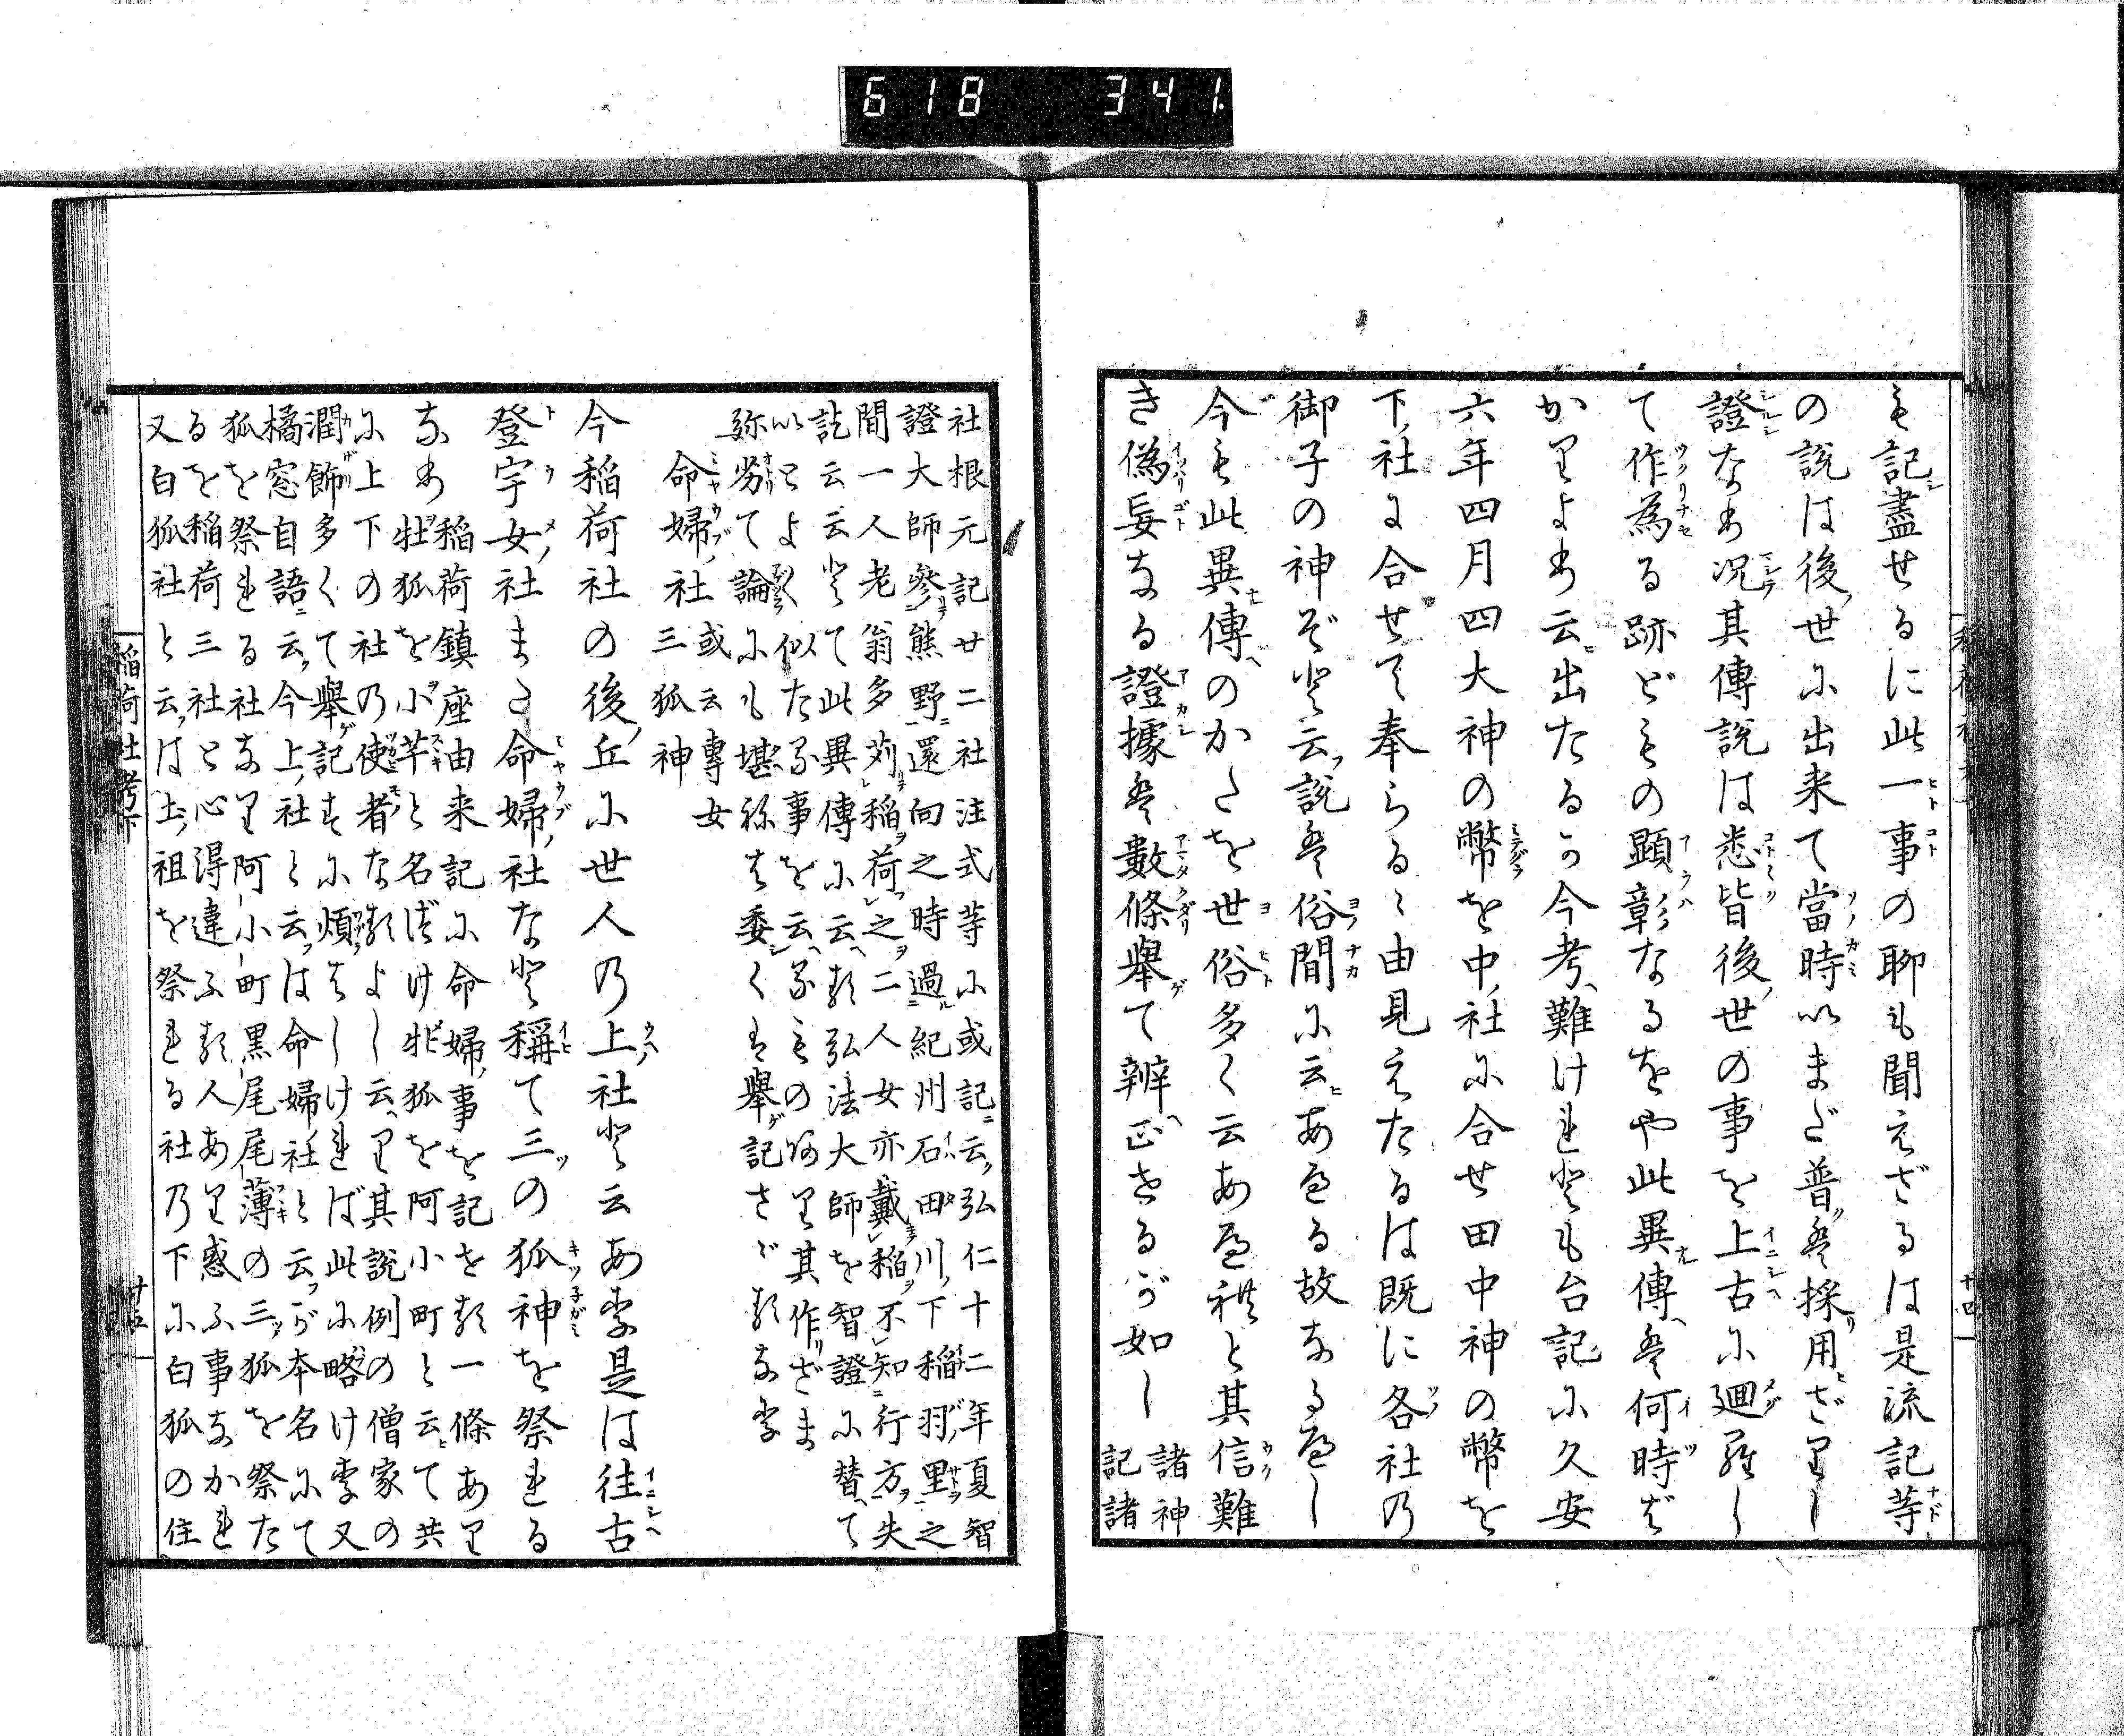 618 341
も記盡せるに此一事の聊も聞えざるは是流記等
の説は後世に出来て當時いまだ普く採用ざりし
證なり况其傳説は悉皆後世の事を上古に廻らし
て作為る跡どもの顕彰なるをや此異傳は何時ば
かりより云出たるか今考難けれども台記に久安
六年四月四大神の幣を中社に合せ田中神の幣を
下社に合せて奉らるゝ由見えたるは既に各社の
御子の神ぞと云説は俗間に云あへる故なるべし
今も此異傳のかたを世俗多く云あへれと其信難
き偽妄なる證據は數條舉て辨正せるが如し諸神記諸
社根元記廿二社注式等に或記云弘仁十二年夏智
證大師參熊野還向之時過紀州石田川下稲羽里之
間一人老翁多苅稲荷之二人女亦戴稲不知行方失
訖云云とて此異傳に云る弘法大師を智證に替て
以とよく似たる事を云るもの有り其作ざま
弥劣て論にも堪ねば委くは舉記さず
命婦社 或云專女三狐神
今稲荷社の後丘に世人の上社と云あり是は往古
登宇女社また命婦社など稱て三の狐神を祭れる
なり 稲荷鎮座由来記に命婦事を記せる一條あり
牡狐を小芋と名づけ牝狐を阿小町と云て共
に上下の社の使者なるよし云り其説例の僧家の
潤飾多くて舉記すに煩はしければ此に略けり又
橘窓自語云今上社と云は命婦社と云が本名にて
狐を祭れる社なり阿小町黒尾尾薄の三狐を祭た
るを稲荷三社と心得違ふる人あり惑ふ事なかれ
又白狐社と云は土祖を祭れる社の下に白狐の住
稲荷社考下 十五
十四